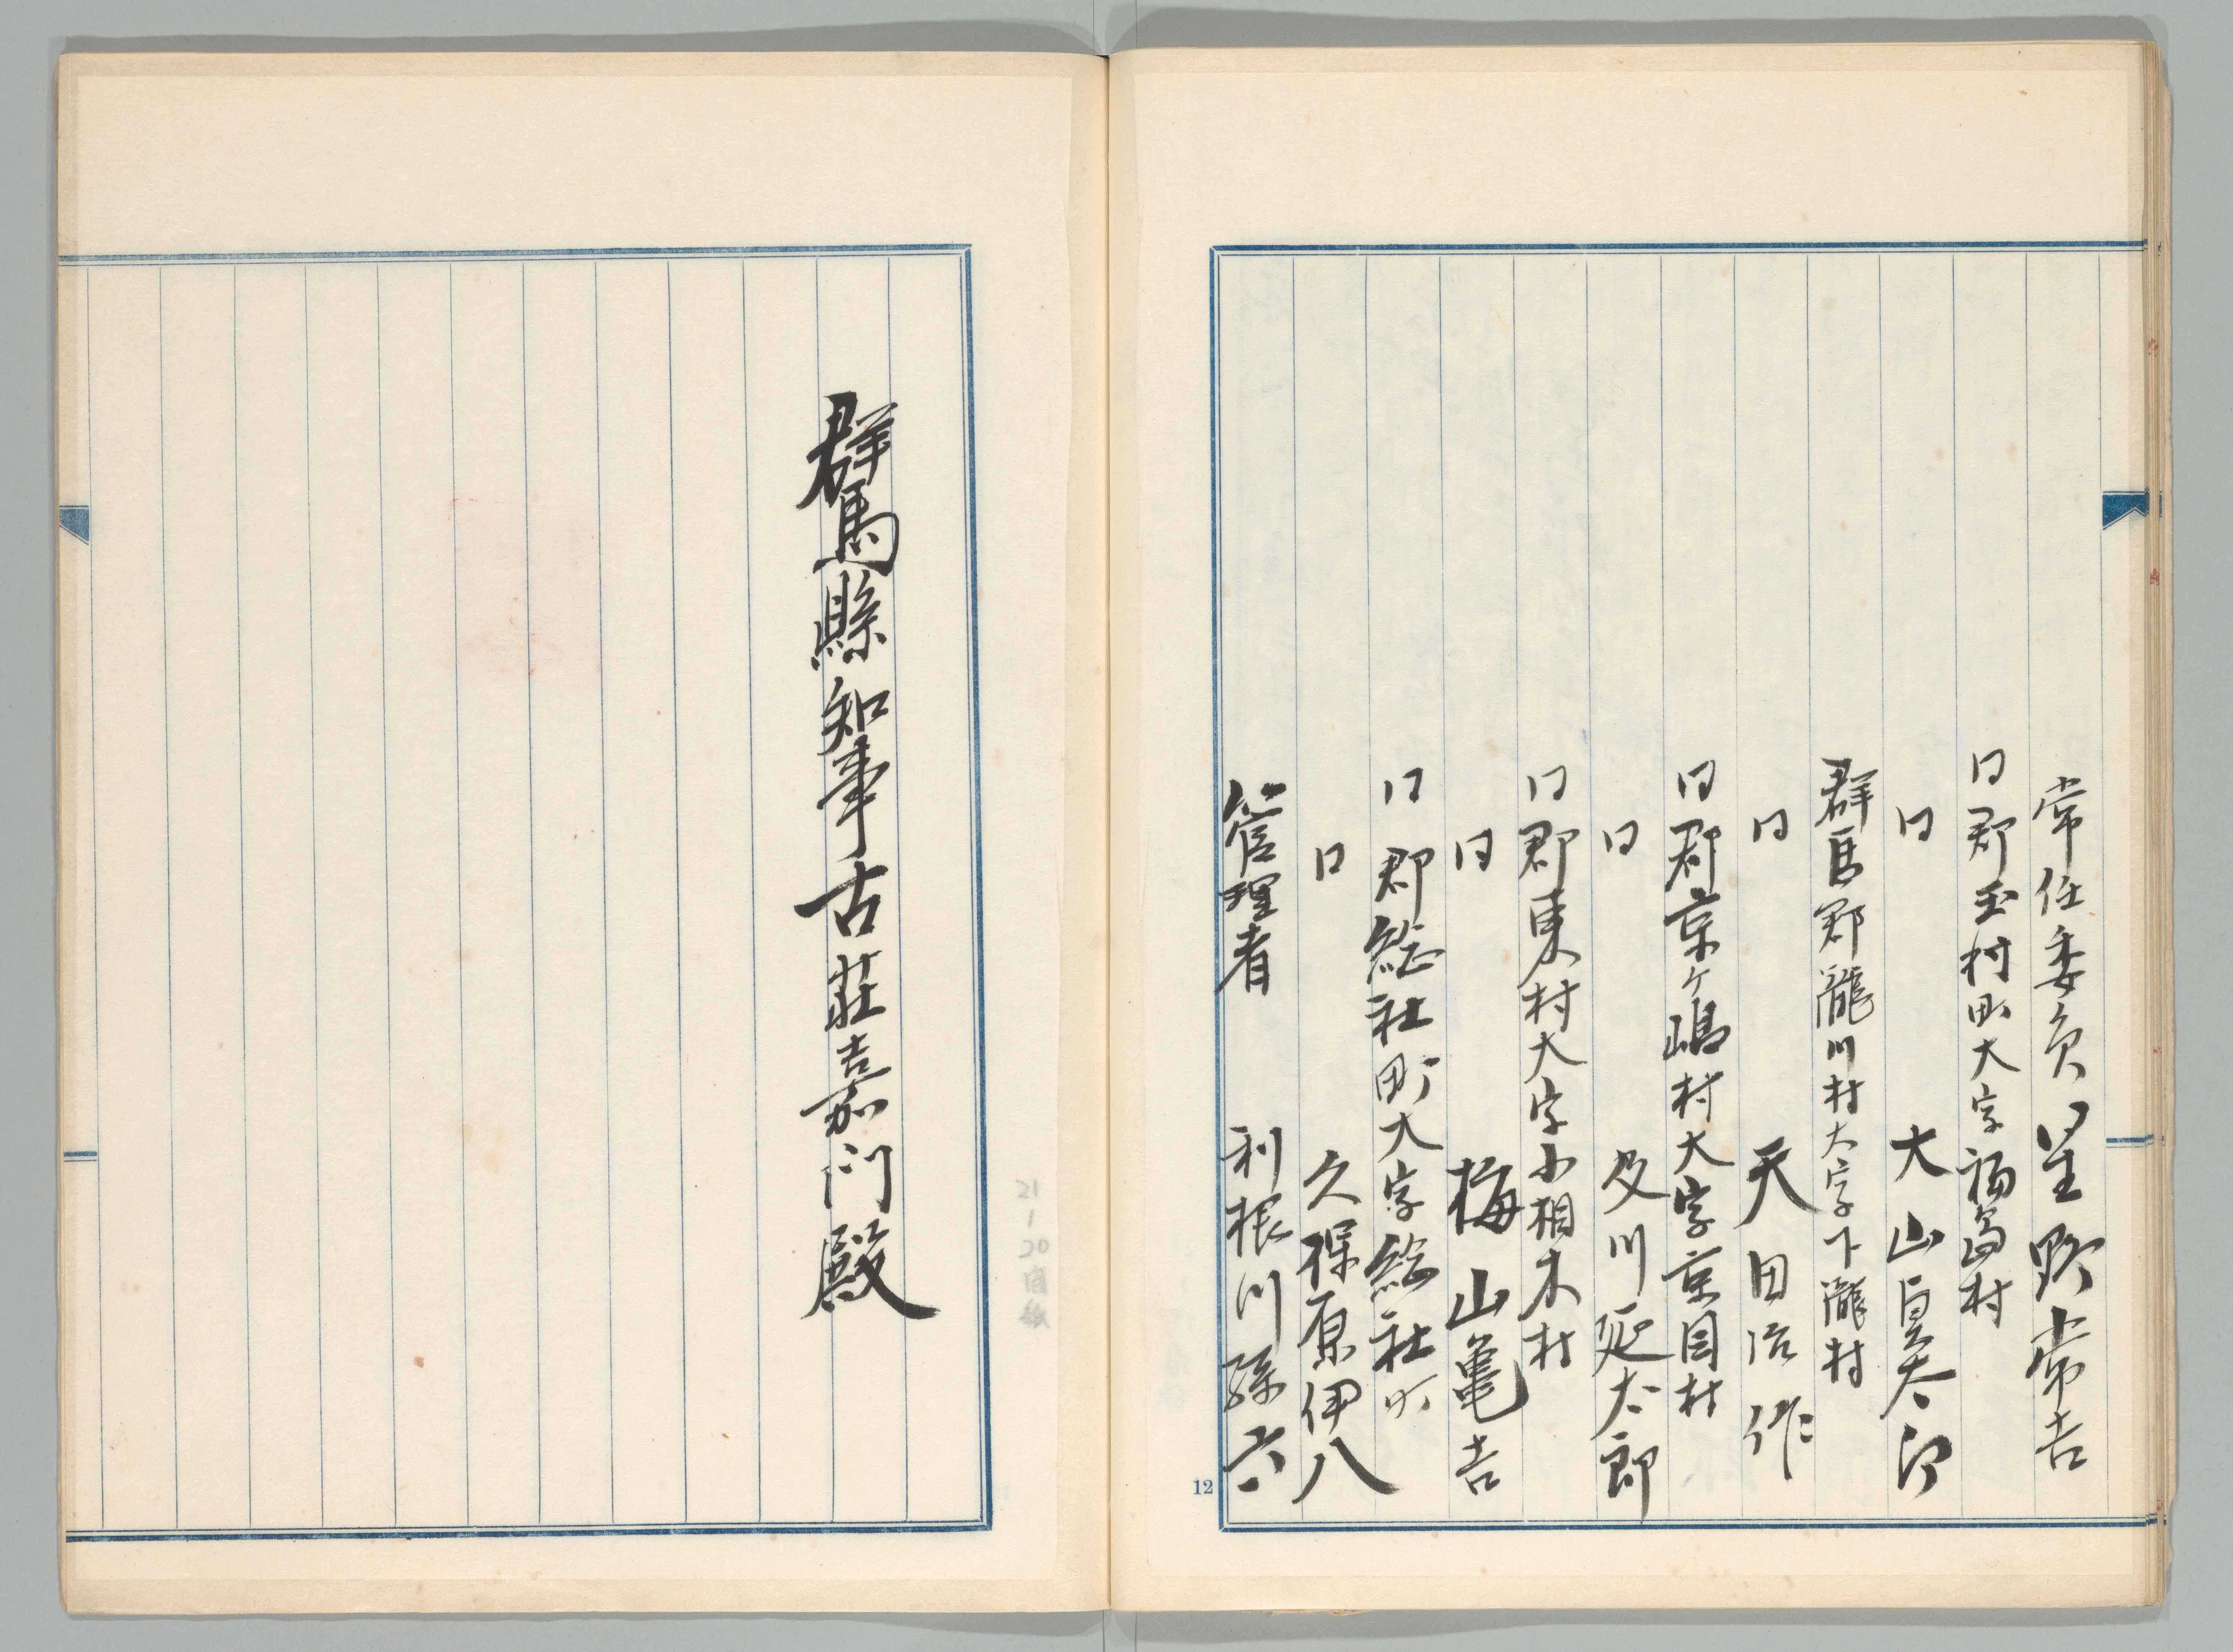 常任委員 星野常吉
同郡玉村町大字福島村
同 大山
群馬郡瀧川村大字下瀧村
同 天田治作
同郡京ヶ嶋村大字京目村
同 及川延太郎
同郡東村大字小相木村
同 梅山亀吉
同郡総社町大字総社町
同 久保原伊八
管理者 利根川孫六
12
群馬縣知事古莊嘉門殿
21
1
20